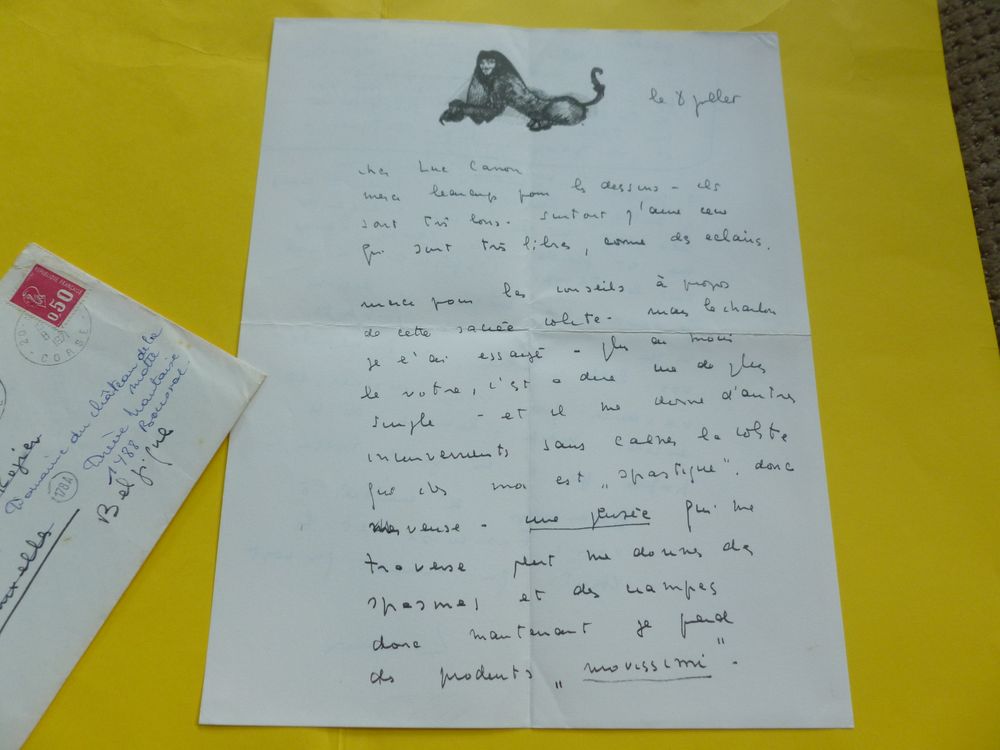 le 8 juillet
cher Luc Canon
merci beaucoup pour les dessins - ils
sont très bons. surtout j'aime ceux
qui sont très libres, comme des eclairs.
merci pour les conseils à propos
de cette sacrée colite. mais le charbon
je l'ai essayé - plus ou moins
le votre, c'est a dire de plus
simple - et il me donne d'autres
inconvenients sans calmer la colite
que chez moi est „spastique". donc
nerveuse - une pensée qui me
traverse peut me donner des
spasmes et des crampes
donc maintenant je prend
des produits „novissimi".
REPUBLIQUE FRANÇAISE
0.50
20
CORSE
Domaine du château de la
motte
Drève
1488 Bousval.
Belgique
178A